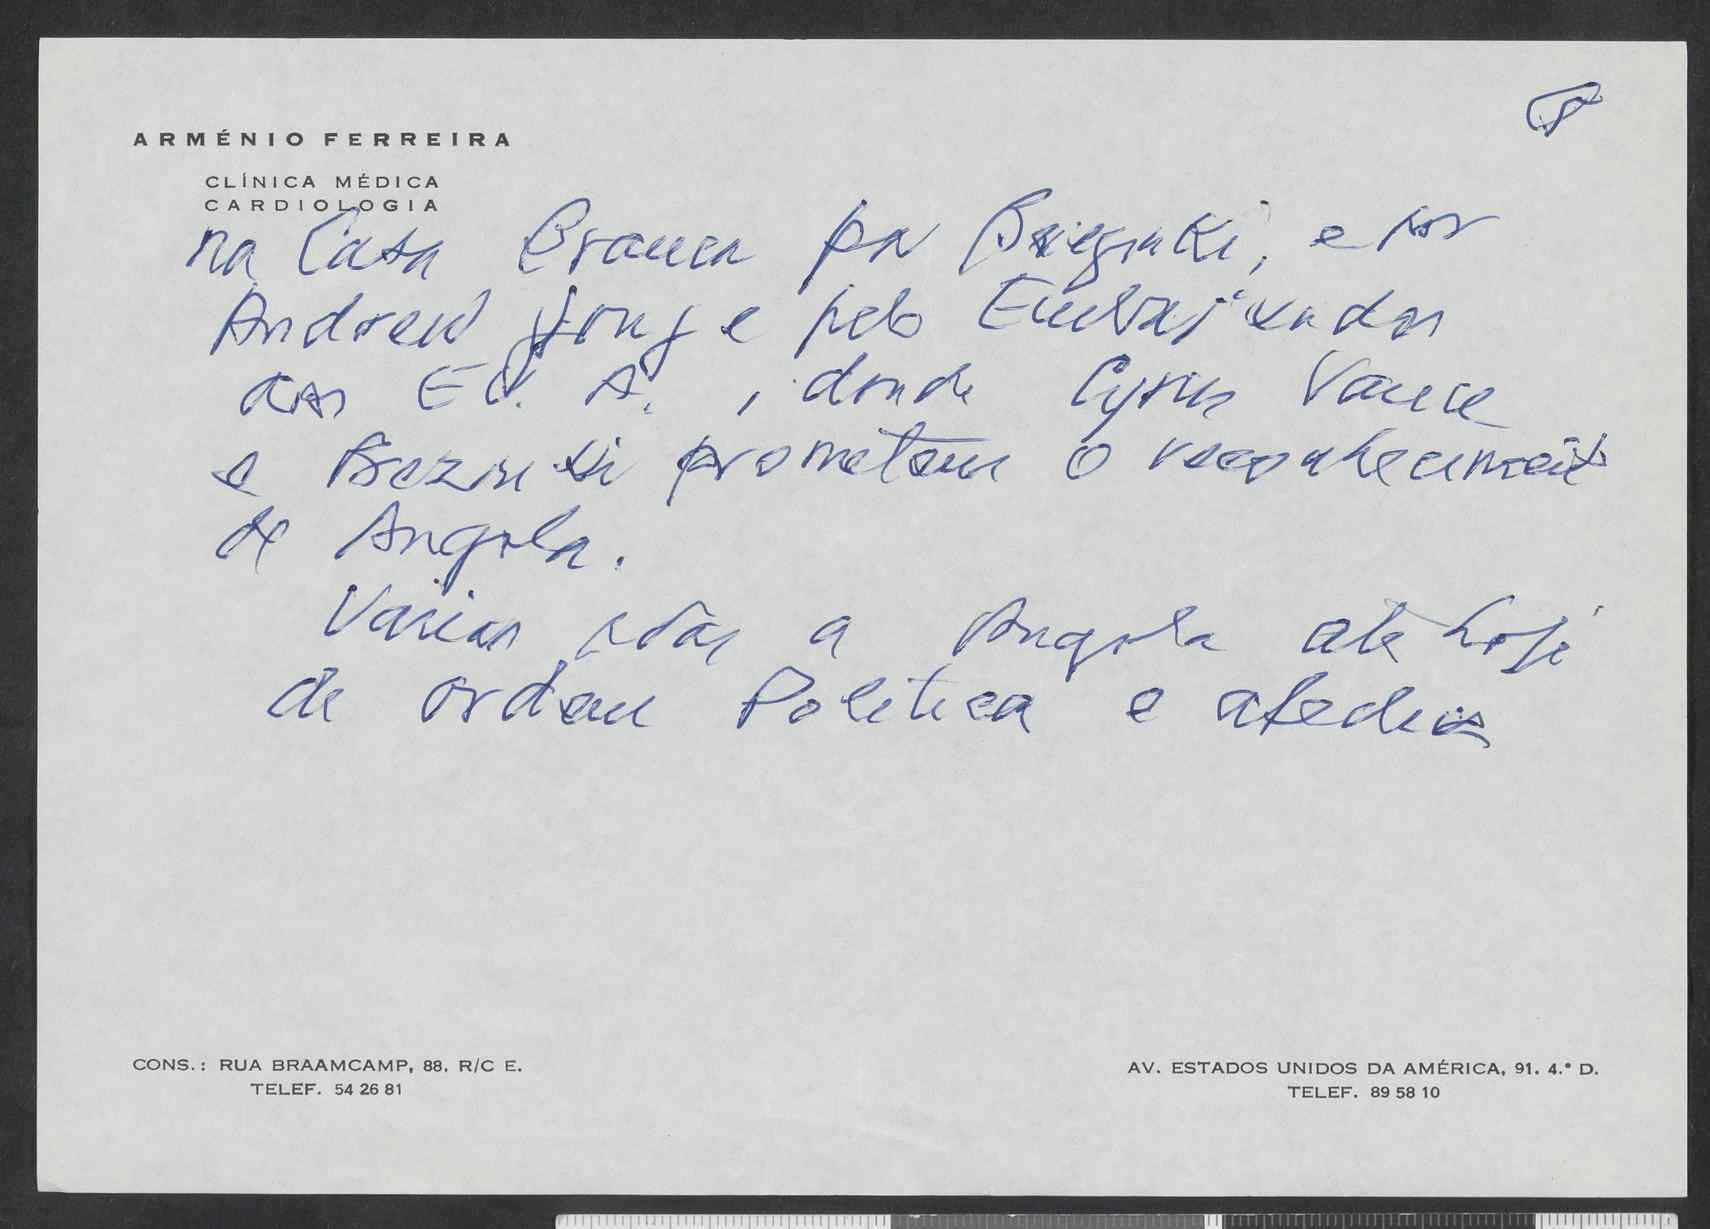 ARMÉNIO FERREIRA
CLÍNICA MÉDICA
CARDIOLOGIA
na Casa Branca por e por
Andrew e pelo Embaixador
dos EU. A., donde Cyrus Vance
e prometem o reconhecimento
de Angola.
Varias idas a Angola até hoje
de ordem Politica e
CONS.: RUA BRAAMCAMP, 88, R/C E.
TELEF. 54 26 81
AV. ESTADOS UNIDOS DA AMÉRICA, 91. 4.° D.
TELEF. 89 58 10